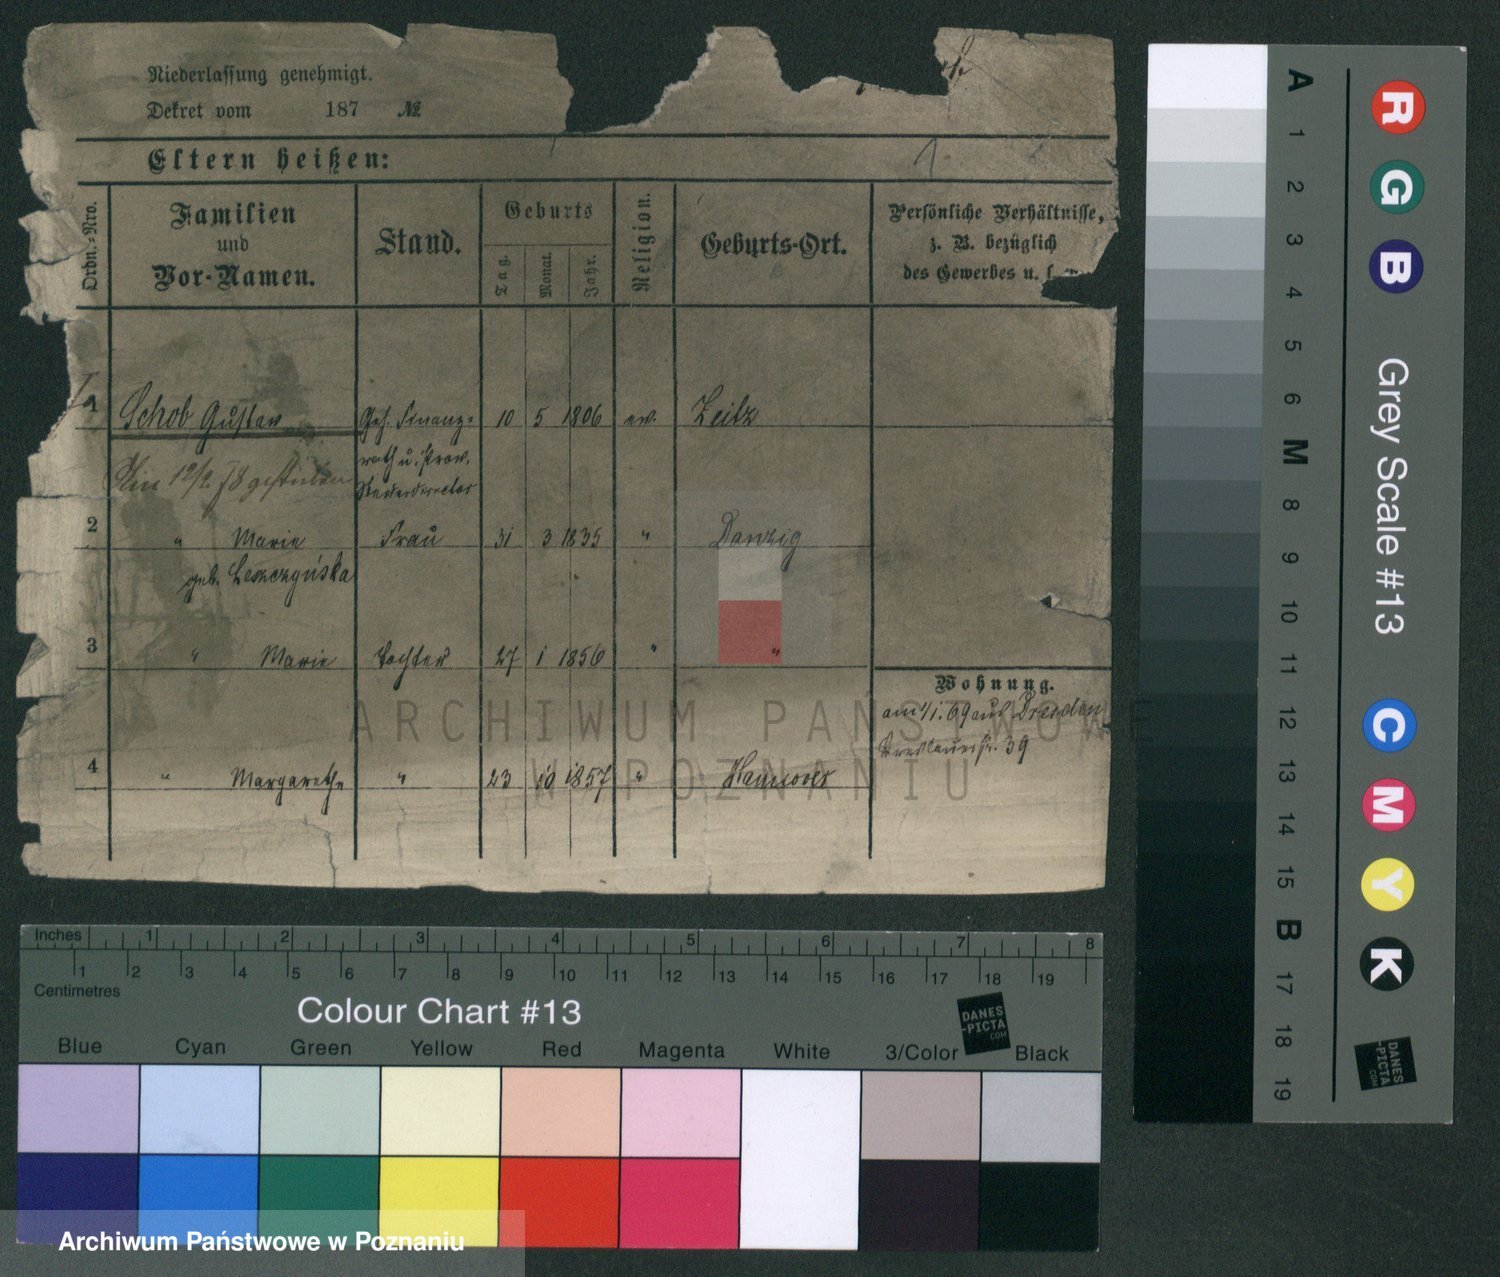 Niederlassung genehmigt.
Dekret vom 187 №
Eltern heißen:
Ordn.-Nro.
Familien und Vor-Namen.
Stand.
Geburts
Tag.
Monat.
Jahr.
Religion.
Geburts-Ort.
Persönliche Verhältnisse,
z. B. bezüglich
des Gewerbes u. s.
1 Schob Gustav Geh. Finanz- 10 5 1806 ev. Zeitz
rath u. Prov.
Steuerdirector
12/2 78 gestorben
2 " Marie Frau 31 3 1835 " Danzig
geb. Leszczyńska
3 " Marie Tochter 27 1 1856 " "
Wohnung.
am 1/1. 69 aus Dresden
Breslauerstr. 39
4 " Margarethe " 23 10 1857 " Hannover
ARCHIWUM PAŃSTWOWE
W POZNANIU
Inches 1 2 3 4 5 6 7 8
1 2 3 4 5 6 7 8 9 10 11 12 13 14 15 16 17 18 19
Centimetres
Colour Chart #13
DANES
-PICTA
.COM
Blue Cyan Green Yellow Red Magenta White 3/Color Black
Archiwum Państwowe w Poznaniu
A 1 2 3 4 5 6 M 8 9 10 11 12 13 14 15 B 17 18 19
R G B
Grey Scale #13
C M Y K
DANES
-PICTA
.COM